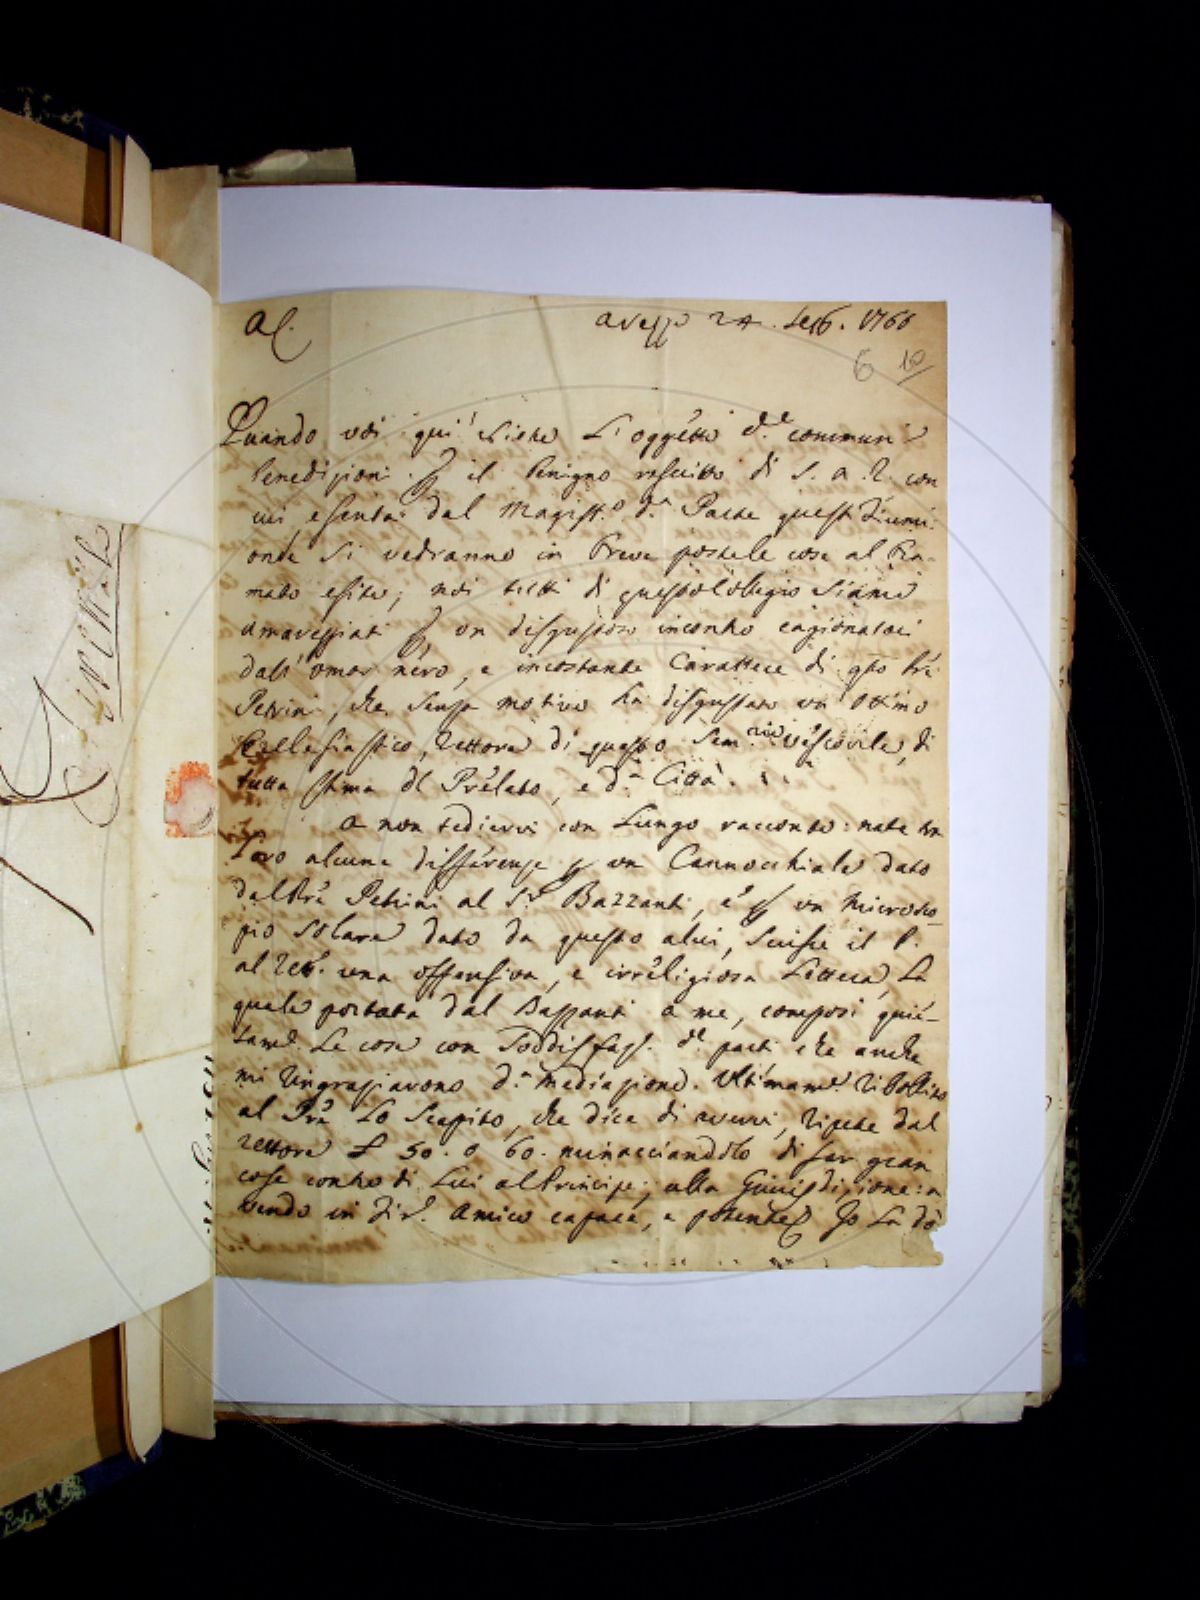 AC.
Arezzo 24. Sett. 1766
6 10
Quando voi quì siete L'oggetto d.e communi
benedizioni p il benigno rescritto di S. A. R. con
cui esenta dal Magist.o d.a Parte questi Fiumi
onde si vedranno in breve poste le cose al bra-
mato esito; noi tutti di questo Collegio siamo
amareggiati p un disgustoso incontro cagionatoci
dall'omor nero, e incostante Carattere di qto Pre
Petrini, che senza motivo ha disgustato un ottimo
Ecclesiastico, Rettore di questo Sem.rio Vescovile, di
tutta stima del Prelato, e d.a Città.
A non tediarvi con Lungo racconto: nate tra
Loro alcune differenze p un Cannocchiale dato
dal Pre Petrini al S.r Bazzanti, e p un Microsco-
pio solare dato da questo a lui, scrisse il P.
al Rett. una offensiva, e irreligiosa Lettera, La
quale portata dal Bazzanti a me, composi quie-
tam.e Le cose con Soddisfaz. d.e parti che anche
mi ringraziarono d.a mediazione. Ultimam.e ribollito
al Pre Lo Scapito, che dice di avervi, ripete dal
Rettore £ 50. o 60. minacciandolo di far gran
cose contro di Lui al Principe, alla Giurisdizione: a
vendo in Fir.e Amico capace, e potente. Io La dò